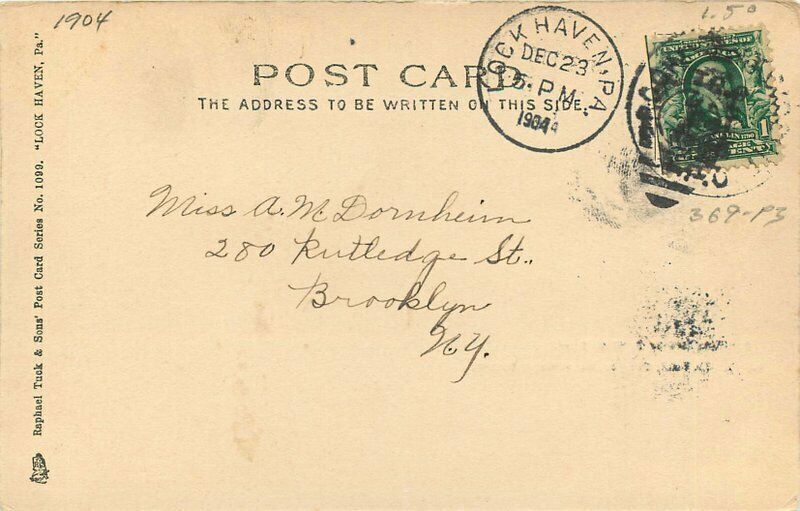 1904
1.50
LOCK HAVEN, PA.
DEC 23
5-PM
1904
POST CARD
THE ADDRESS TO BE WRITTEN ON THIS SIDE.
369-P3
Miss A. M. Dornheim
280 Rutledge St.
Brooklyn
N.Y.
Raphael Tuck & Sons' Post Card Series No. 1099. "LOCK HAVEN, Pa."